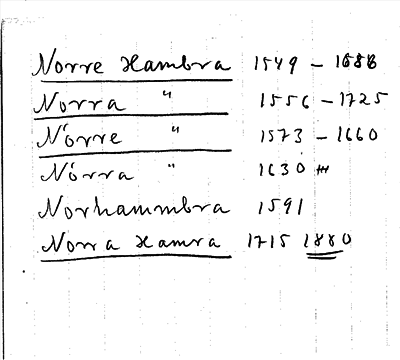 Norre Hambra 1549 - 1688
Norra " 1556 - 1725
Nörre " 1573 - 1660
Nörra " 1630
Norhammbra 1591
Norra Hamra 1715 1880